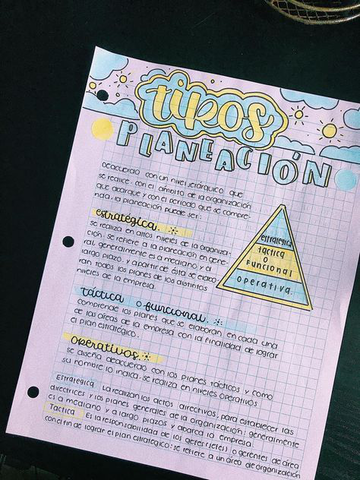 tipos
PLANEACIÓN
deacuerdo con un nivel jerárquico que
se realice, con el ámbito de la organización
que abarque y con el periodo que se compren-
nda, la planeación puede ser:
estratégica.
se realiza en altos niveles de la organiza-
ción, se refiere a la planeación en gene-
ral, generalmente es a mediano, y a
largo plazo, y a partir de ésta se elabo
ran todos los planes de los distintos
niveles de la empresa.
estratégica
táctica
o
funcional
operativa
táctica o funcional.
comprende los planes que se elaboran en cada una
de las áreas de la empresa con la finalidad de lograr
el plan estratégico.
operativos.
se diseña deacuerdo con los planes tácticos y como
su nombre lo indica, se realiza en niveles operativos
Estratégica. La realizan los altos directivos, para establecer las
directrices y los planes generales de la organización; generalmente
es a mediano y a largo plazos y abarca la empresa.
Táctica. Es la responsabilidad de los gerentes de área
con el fin de lograr el plan estratégico; se refiere a un área de organización